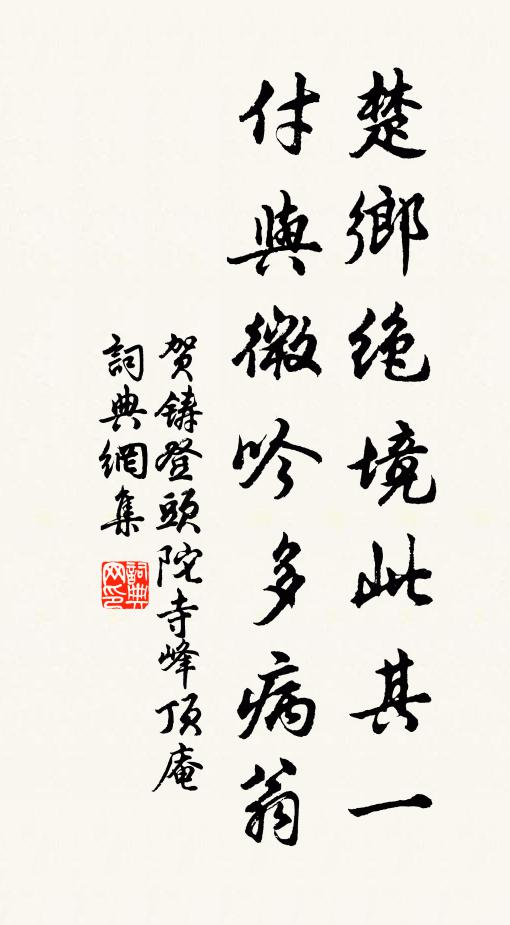 楚鄉绝境此其一
付與微吟多病翁
賀鑄登頭陀寺峰頂庵
詞典網集
詞典网印